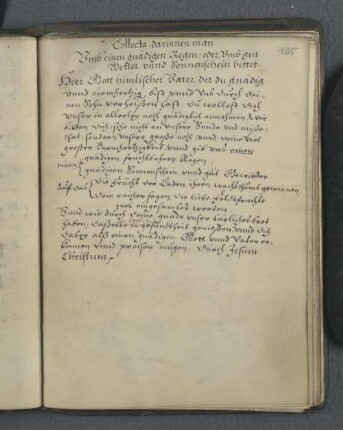 105
Collecta darinnen man
Vmb einen gnädigen Regen, oder Vmb gut
Wetter vnnd Sonnenschein bittet.
Herr Gott himlischer Vater der du gnädig
vnnd barmhertzig bist vnnd Vns durch dei-
nen Sohn verheißen hast, du wollest dich
vnser in allerley noth gnädiglich annehmen, Wir
bitten dich, siehe nicht an vnsere Sünde vnd misse-
that, sondern vnsere große noth vnnd deine
große Barmhertzigkeit vnnd gib vns einen
gnädigen fruchtbahren Regen,
gnädigen Sonnenschein vnnd gut Gewitter
Auf das die früchte der Erden ihren wachsthumb gewinnen
die liebe feldtfrüchte
eingesamlet werden
Vnnd wir durch deine gnade vnser täglichs brot
haben, dasselbe in gesundtheit genießen vnnd dich
dabey alß einen gnädigen Gott vnnd Vater er-
kennen vnnd preisen mögen, durch Jesum
Christum